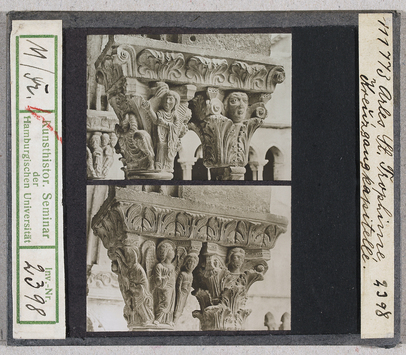 M/Fr.
Kunsthistor. Seminar
der
Hamburgischen Universität
Inv.-Nr.
2398
Arles St. Trophime
Kreuzgangkapitelle.
2398